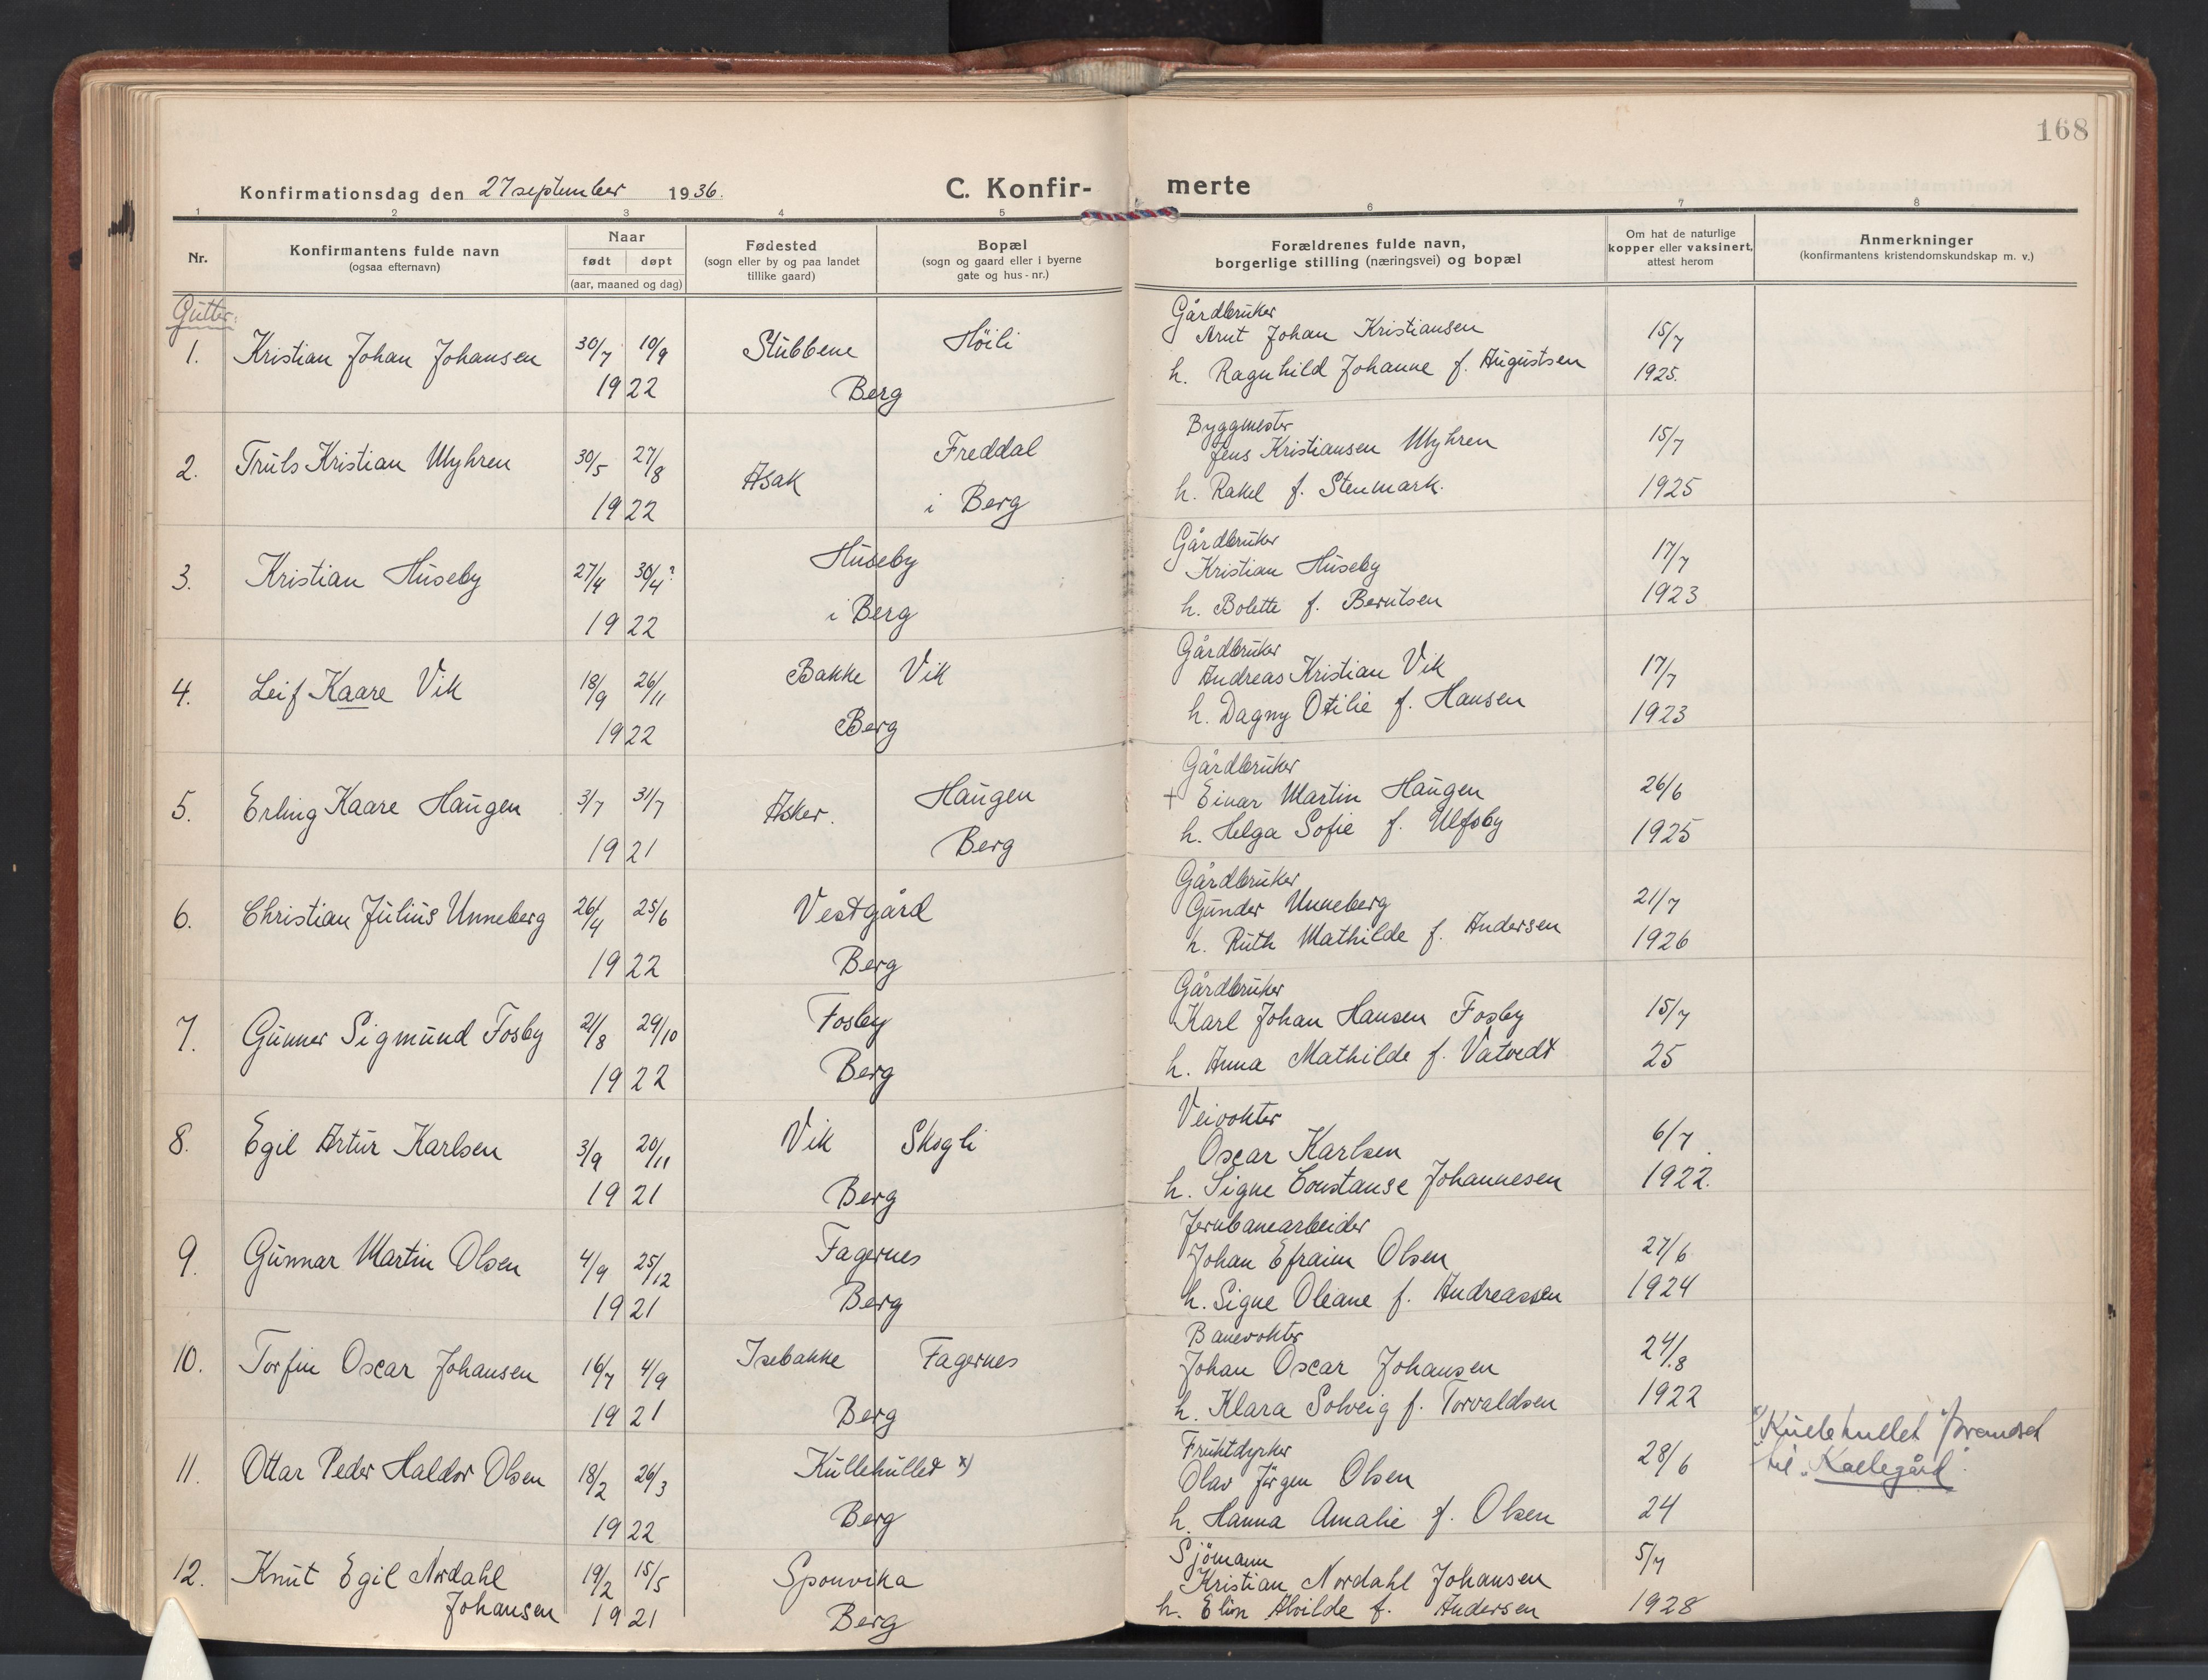 168
Konfirmationsdag den 27 september 1936.
C. Konfir-
merte
1 2 3 4 5 6 7 8
Nr.
Konfirmantens fulde navn
(ogsaa efternavn)
Naar
født døpt
(aar, maaned og dag)
Fødested
(sogn eller by og paa landet
tillike gaard)
Bopæl
(sogn og gaard eller i byerne
gate og hus-nr.)
Forældrenes fulde navn,
borgerlige stilling (næringsvei) og bopæl
Om hat de naturlige
kopper eller vaksinert,
attest herom
Anmerkninger
(konfirmantens kristendomskundskap m. v.)
Gutter:
1. Kristian Johan Johansen 30/7 10/9 Stubbene Høili
1922 Berg
Gårdbruker
Arnt Johan Kristiansen 15/7
h. Ragnhild Johanne f. Augustsen 1925.
2. Truls Kristian Myhren 30/5 27/8 Asak Freddal
1922 i Berg
Byggmester
Jens Kristiansen Myhren 15/7
h. Rakel f. Stenmark. 1925
3. Kristian Huseby 27/4 30/4? Huseby
1922 i Berg
Gårdbruker
Kristian Huseby 17/7
h. Bolette f. Berntsen 1923
4. Leif Kaare Vik 18/9 26/11 Bakke Vik
1922 Berg
Gårdbruker
Andreas Kristian Vik 17/7
h. Dagny Otilie f. Hansen 1923
5. Erling Kaare Haugen 3/7 31/7 Asker. Haugen
1921 Berg
Gårdbruker
+ Einar Martin Haugen 26/6
h. Helga Sofie f. Ulfsby 1925
6. Christian Julius Unneberg 26/4 25/6 Vestgård
1922 Berg
Gårdbruker
Gunder Unneberg 21/7
h. Ruth Mathilde f. Andersen 1926
7. Gunner Sigmund Fosby 21/8 29/10 Fosby
1922 Berg
Gårdbruker
Karl Johan Hansen Fosby 15/7
h. Anna Mathilde f. Vatvedt 25
8. Egil Artur Karlsen 3/9 20/11 Vik Skogli
1921 Berg
Veivokter
Oscar Karlsen 6/7.
h. Signe Constanse Johannesen 1922.
9. Gunnar Martin Olsen 4/9 25/12 Fagernes
1921 Berg
Jernbanearbeider
Johan Efraim Olsen 27/6
h. Signe Oleane f. Andreassen 1924
10. Torfin Oscar Johansen 16/7 4/9 Isebakke Fagernes
1921 Berg
Banevokter
Johan Oscar Johansen 24/8
h. Klara Solveig f. Torvaldsen 1922
11. Ottar Peder Haldor Olsen 18/2 26/3 Kullehullet x)
1922 Berg
Fruktdyrker
Olav Jörgen Olsen 28/6
h. Hanna Amalie f. Olsen 24
x) "Kullehullet" forandret
til "Kallegård".
12. Knut Egil Nordahl 19/2 15/5 Sponvika
Johansen 1921 Berg
Sjömann 5/7
Kristian Nordahl Johansen
h. Elin Alvilde f. Andersen 1928